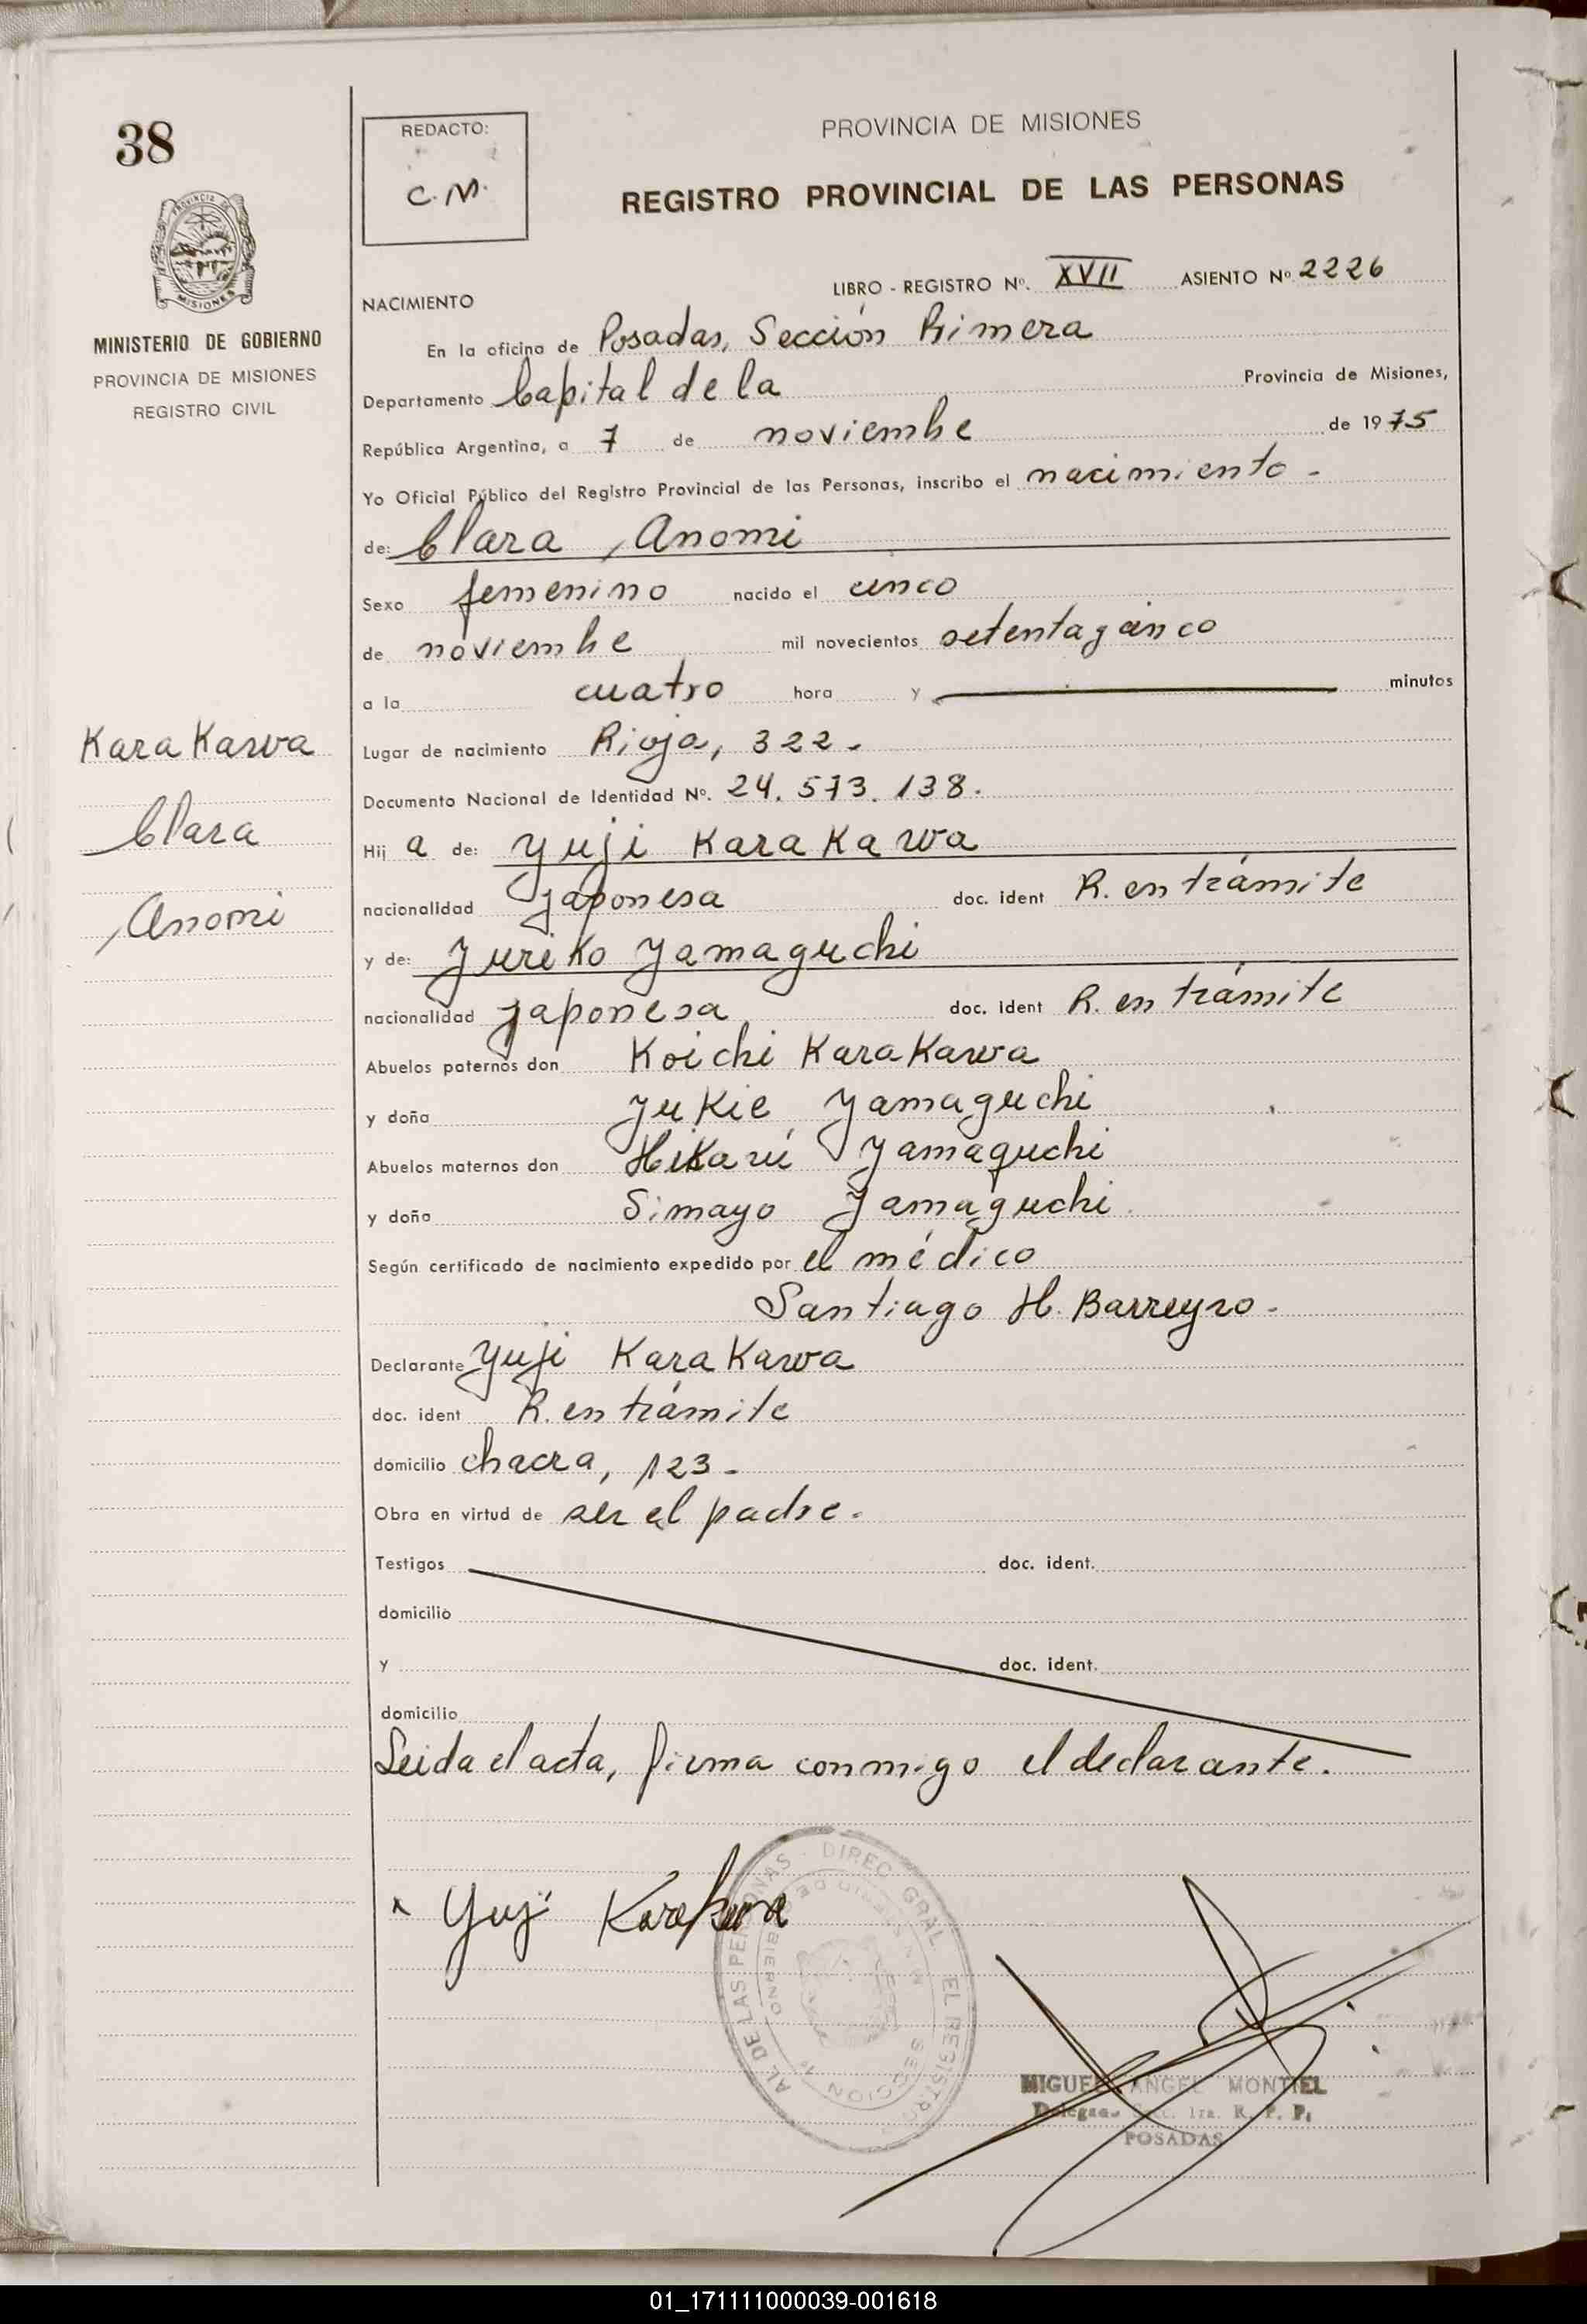 38
REDACTO:
C. M.
PROVINCIA DE MISIONES
REGISTRO PROVINCIAL DE LAS PERSONAS
PROVINCIA DE
MISIONES
MINISTERIO DE GOBIERNO
PROVINCIA DE MISIONES
REGISTRO CIVIL
LIBRO - REGISTRO Nº. XVII ASIENTO Nº. 2226
NACIMIENTO
En la oficina de Posadas, Sección Primera
Departamento Capital de la Provincia de Misiones,
República Argentina, a 7 de noviembre de 1975
Yo Oficial Público del Registro Provincial de las Personas, inscribo el nacimiento -
de: Clara, Anomi
Sexo femenino nacido el cinco
de noviembre mil novecientos setenta y cinco
a la cuatro hora y minutos
Kara Kawa
Clara
, Anomi
Lugar de nacimiento Rioja, 322.
Documento Nacional de Identidad Nº. 24. 573. 138.
Hij a de: Yuji Kara Kawa
nacionalidad japonesa doc. ident R. en trámite
y de: Yuriko Yamaguchi
nacionalidad japonesa doc. ident R. en trámite
Abuelos paternos don Koichi Kara Kawa
y doña Yukie Yamaguchi
Abuelos maternos don Hikarú Yamaguchi
y doña Simayo Yamaguchi
Según certificado de nacimiento expedido por el médico
Santiago H. Barreyro -
Declarante Yuji Kara Kawa
doc. ident R. en trámite
domicilio chacra, 123 -
Obra en virtud de ser el padre.
Testigos doc. ident.
domicilio
y doc. ident.
domicilio
Leida el acta, firma conmigo el declarante.
Yuji Karakawa
AL DE LAS PERSONAS · DIREC. GRAL. EL REGISTRO
SECCION 1ª
MIGUEL ANGEL MONTIEL
Delegado Secc. 1ra. R. P. P.
POSADAS
01_171111000039-001618